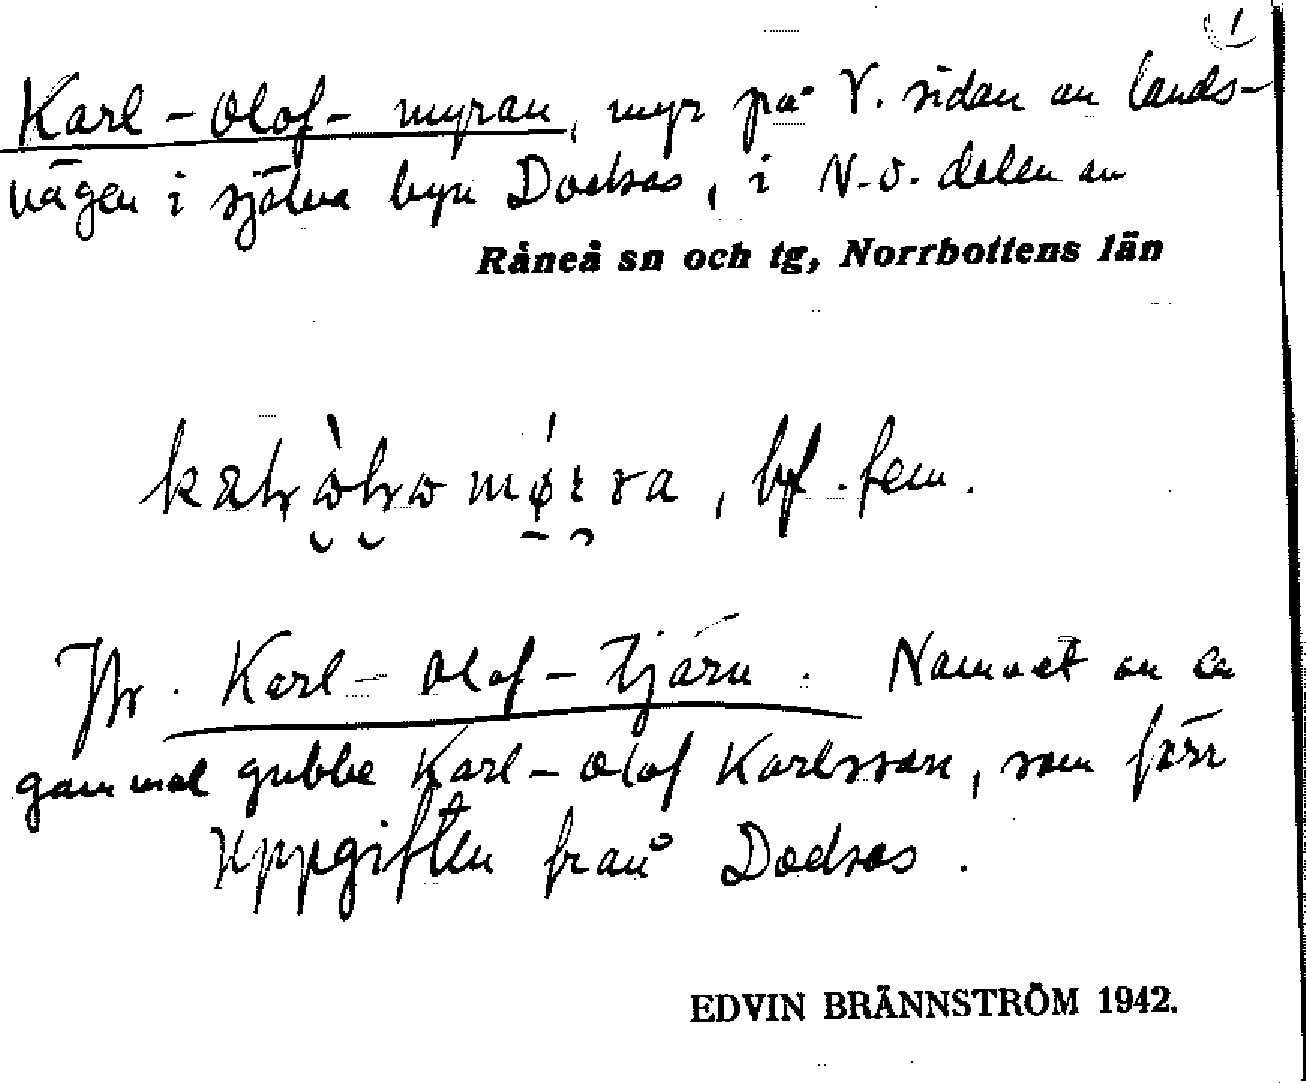 1
Karl-Olof-myran, myr på V. sidan av lands-
vägen i själva byn Dockas, i N.O. delen av
Råneå sn och tg, Norrbottens län
, bf. fem.
Jfr. Karl-Olof-tjärn. Namnet av en
gammal gubbe Karl-Olof Karlsson, som förr
Uppgiften från Dockas.
EDVIN BRÄNNSTRÖM 1942.